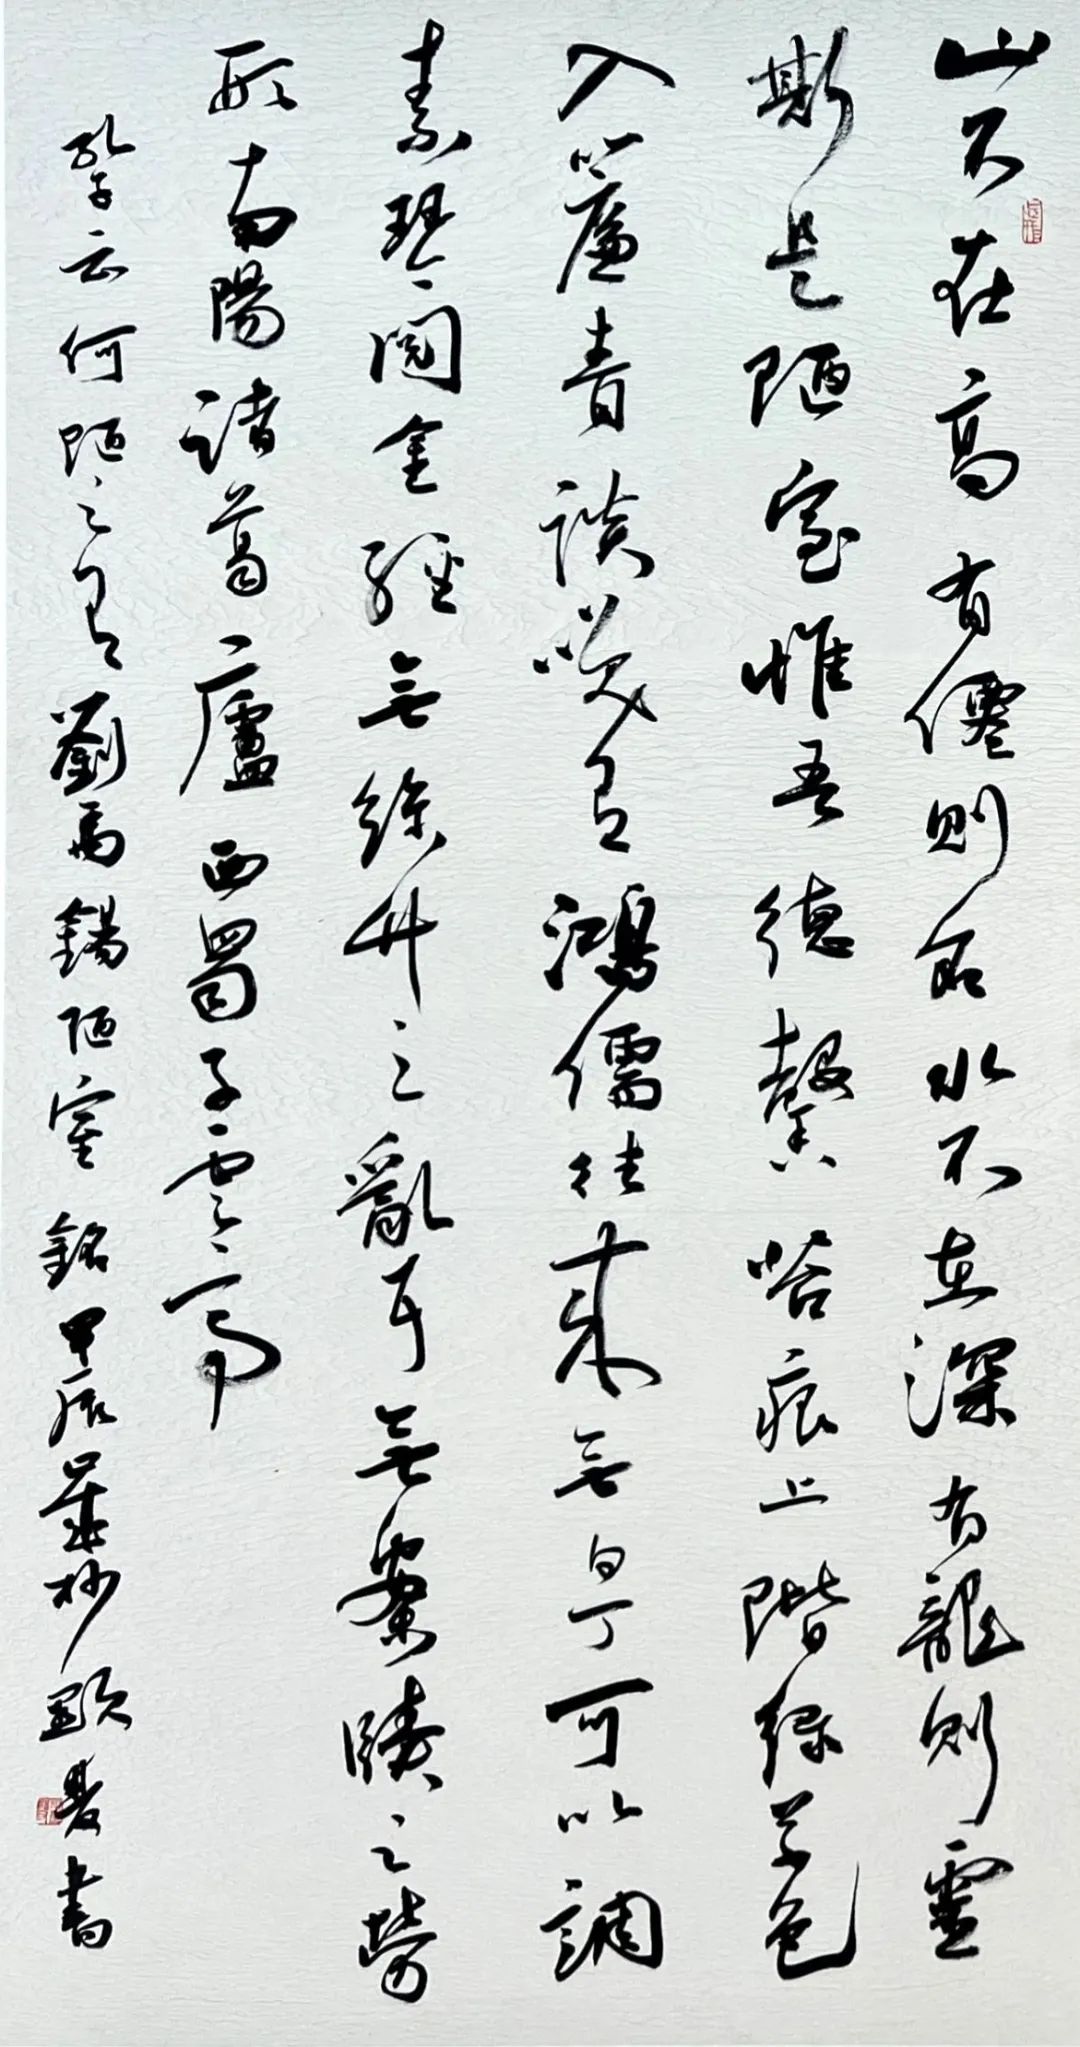 山不在高有僊則名水不在深有龍則靈
斯是陋室惟吾德馨苔痕上階綠草色
入簾青談笑有鴻儒往來無白丁可以調
素琴閱金經無絲竹之亂耳無案牘之勞
形南陽諸葛廬西蜀子雲亭
孔子云何陋之有劉禹錫陋室銘甲辰歲杪顯書